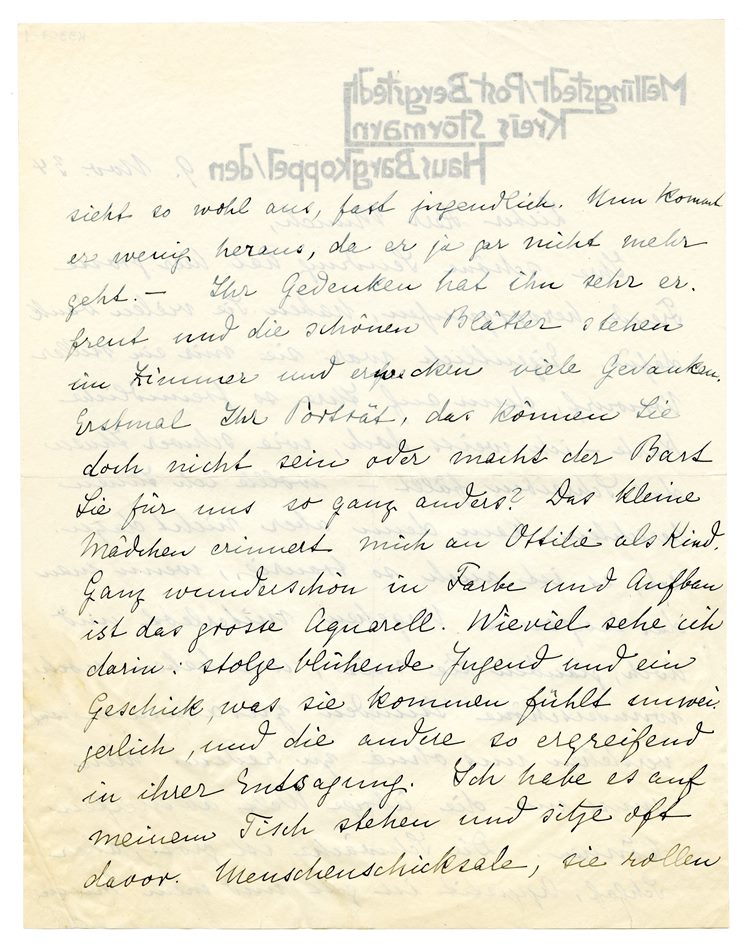 Mellingstedt/Post Bergstedt
Kreis Stormarn
Haus Bargkoppel/den 9. Nov 34
sieht so wohl aus, fast jugendlich. Nun kommt
er wenig heraus, da er ja gar nicht mehr
geht. — Ihr Gedenken hat ihn sehr er-
freut und die schönen Blätter stehen
im Zimmer und erwecken viele Gedanken.
Erstmal Ihr Porträt, das können Sie
doch nicht sein oder macht der Bart
Sie für uns so ganz anders? Das kleine
Mädchen erinnert mich an Ottilie als Kind.
Ganz wunderschön in Farbe und Aufbau
ist das grosse Aquarell. Wieviel sehe ich
darin: stolze blühende Jugend und ein
Geschick, was sie kommen fühlt unwei-
gerlich, und die andere so ergreifend
in ihrer Entsagung. Ich habe es auf
meinem Tisch stehen und sitze oft
davor. Menschenschicksale, sie rollen